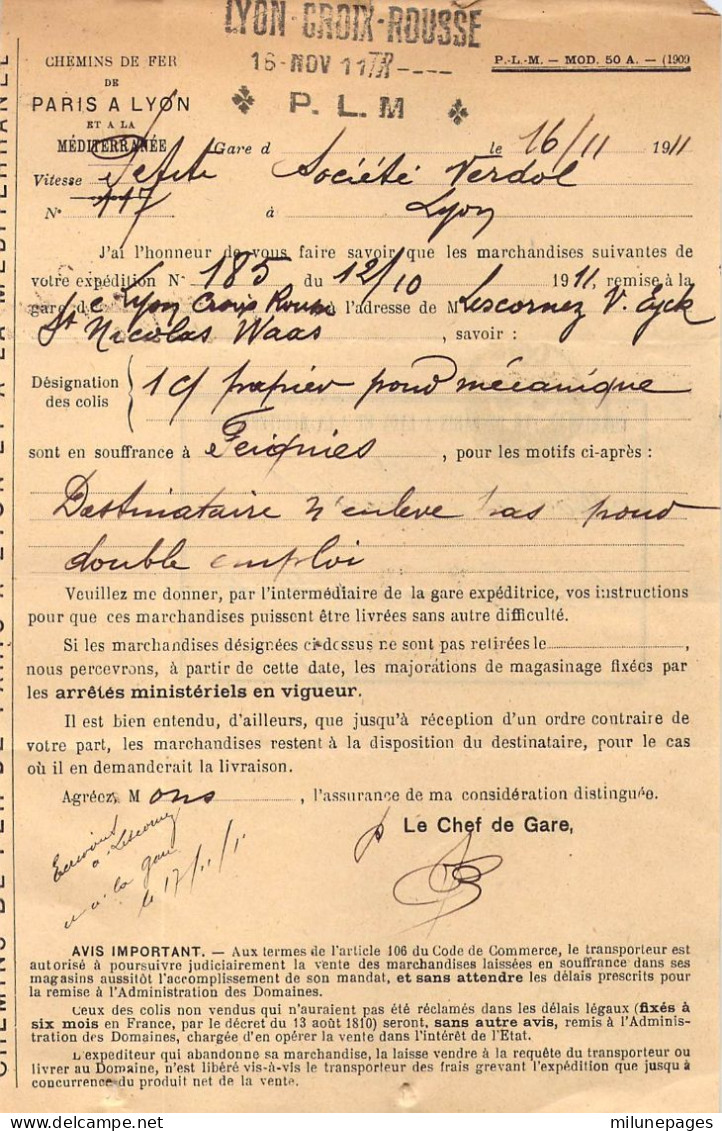 LYON-CROIX-ROUSSE
16-NOV 11
P. L. M
CHEMINS DE FER
DE
PARIS A LYON
ET A LA
MÉDITERRANÉE
P.-L.-M. — MOD. 50 A. — (1909
Gare d le 16/11 1911
Vitesse Petite Société Verdol
N° 117 à Lyon
J'ai l'honneur de vous faire savoir que les marchandises suivantes de
votre expédition N° 185 du 12/10 1911, remise à la
gare de Lyon Croix Rousse à l'adresse de M Lescornez V. Eyck
St Nicolas Waas , savoir :
Désignation
des colis
1 c/ papier pour mécanique
sont en souffrance à Feignies , pour les motifs ci-après :
Destinataire n'enlève pas pour
double emploi
Veuillez me donner, par l'intermédiaire de la gare expéditrice, vos instructions
pour que ces marchandises puissent être livrées sans autre difficulté.
Si les marchandises désignées ci-dessus ne sont pas retirées le ,
nous percevrons, à partir de cette date, les majorations de magasinage fixées par
les arrêtés ministériels en vigueur.
Il est bien entendu, d'ailleurs, que jusqu'à réception d'un ordre contraire de
votre part, les marchandises restent à la disposition du destinataire, pour le cas
où il en demanderait la livraison.
Agréez, M ons , l'assurance de ma considération distinguée.
p Le Chef de Gare,
à Lescornez
et à la gare
le 17/11/11
AVIS IMPORTANT. — Aux termes de l'article 106 du Code de Commerce, le transporteur est
autorisé à poursuivre judiciairement la vente des marchandises laissées en souffrance dans ses
magasins aussitôt l'accomplissement de son mandat, et sans attendre les délais prescrits pour
la remise à l'Administration des Domaines.
Ceux des colis non vendus qui n'auraient pas été réclamés dans les délais légaux (fixés à
six mois en France, par le décret du 13 août 1810) seront, sans autre avis, remis à l'Adminis-
tration des Domaines, chargée d'en opérer la vente dans l'intérêt de l'Etat.
L'expéditeur qui abandonne sa marchandise, la laisse vendre à la requête du transporteur ou
livrer au Domaine, n'est libéré vis-à-vis le transporteur des frais grevant l'expédition que jusqu'à
concurrence du produit net de la vente.
delcampe.net
milunepages